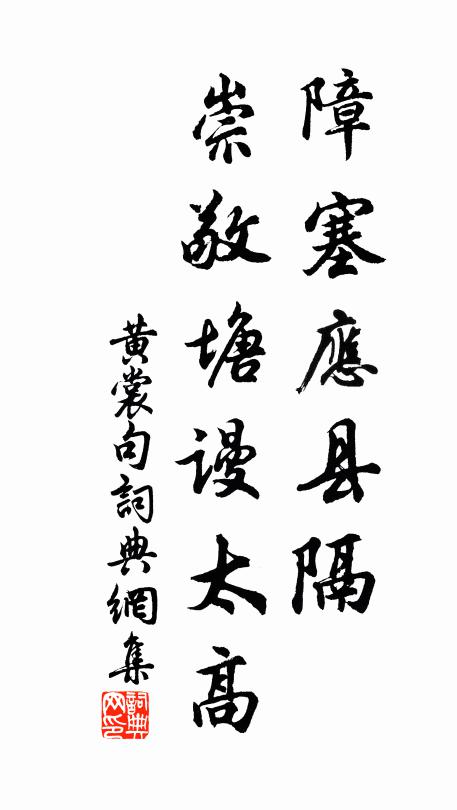 障塞應县隔
崇敬塘谩太高
黄裳句詞典網集
詞典網印